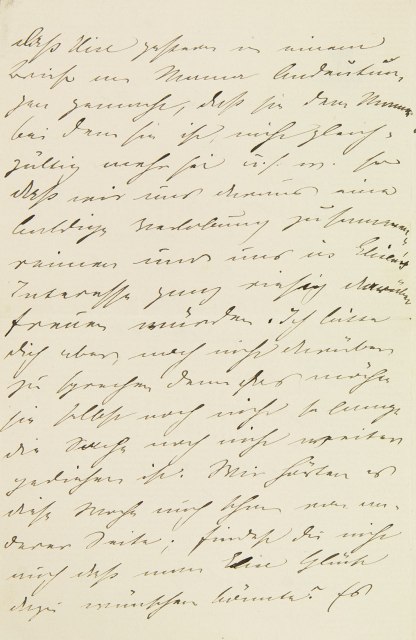 daß Eine gestern in einem
Briefe an Mama Andeutun-
gen gemacht, daß sie dem Manne
bei dem sie ist, nicht gleich-
gültig mehr sei u.s.w. so
daß wir uns daraus eine
baldige Verlobung zusammen-
reimen und uns in
Interesse ganz riesig darüber
freuen würden. Ich bitte
dich aber noch nicht darüber
zu sprechen denn das möchte
sie selbst noch nicht so lange
die Sache noch nicht weiter
gediehen ist. Wir hörten es
diese Woche auch schon von an-
derer Seite; findest du nicht
auch daß man Glück
dazu wünschen könnte? Es